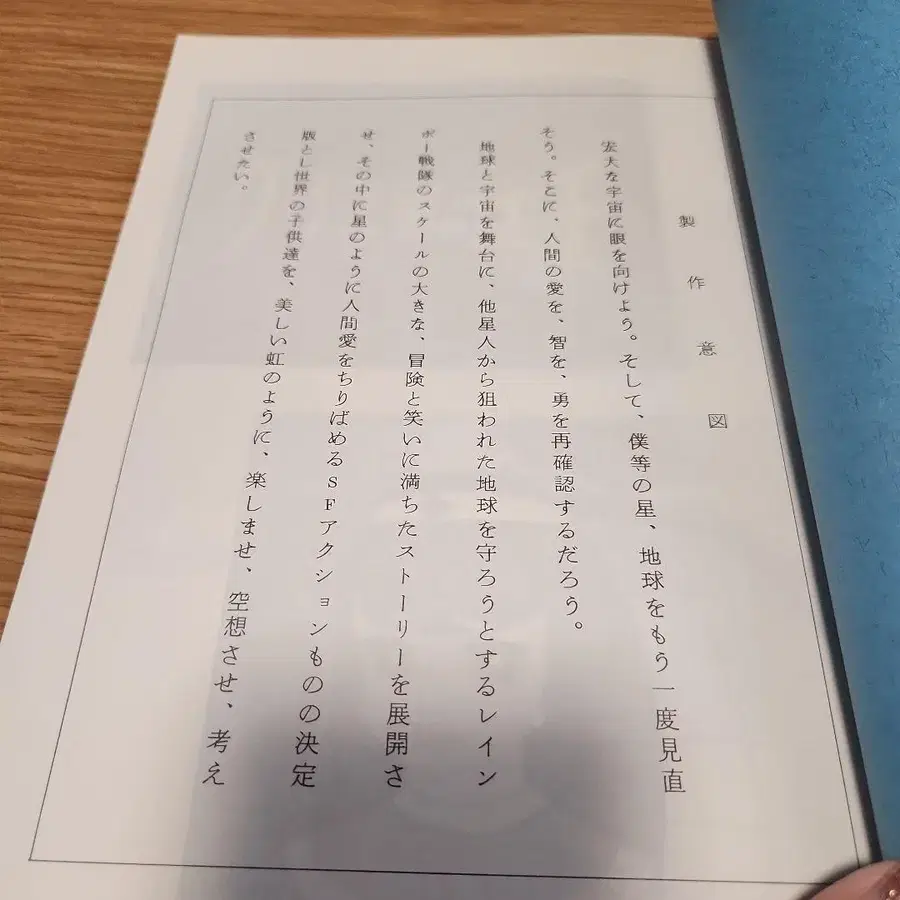 製作意図
宏大な宇宙に眼を向けよう。そして、僕等の星、地球をもう一度見直
そう。そこに、人間の愛を、智を、勇を再確認するだろう。
地球と宇宙を舞台に、他星人から狙われた地球を守ろうとするレイン
ボー戦隊のスケールの大きな、冒険と笑いに満ちたストーリーを展開さ
せ、その中に星のように人間愛をちりばめるSFアクションものの決定
版とし世界の子供達を、美しい虹のように、楽しませ、空想させ、考え
させたい。